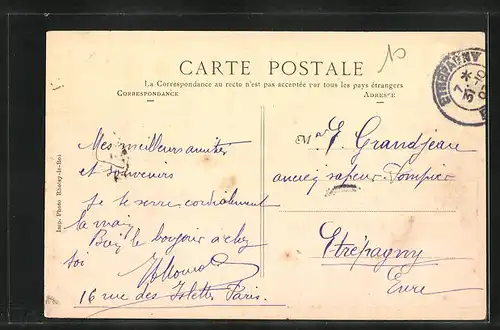 CARTE POSTALE
La Correspondance au recto n'est pas acceptée par tous les pays étrangers
CORRESPONDANCE
ADRESSE
ETREPAGNY
7 *
31
Mes meilleurs amitiés
et souvenirs
Je te serre cordialement
la main
le bonjour chez
toi
16 rue des Islettes Paris.
Mr Grandjean
ancien sapeur Pompier
Etrépagny
Eure
Imp. Photo